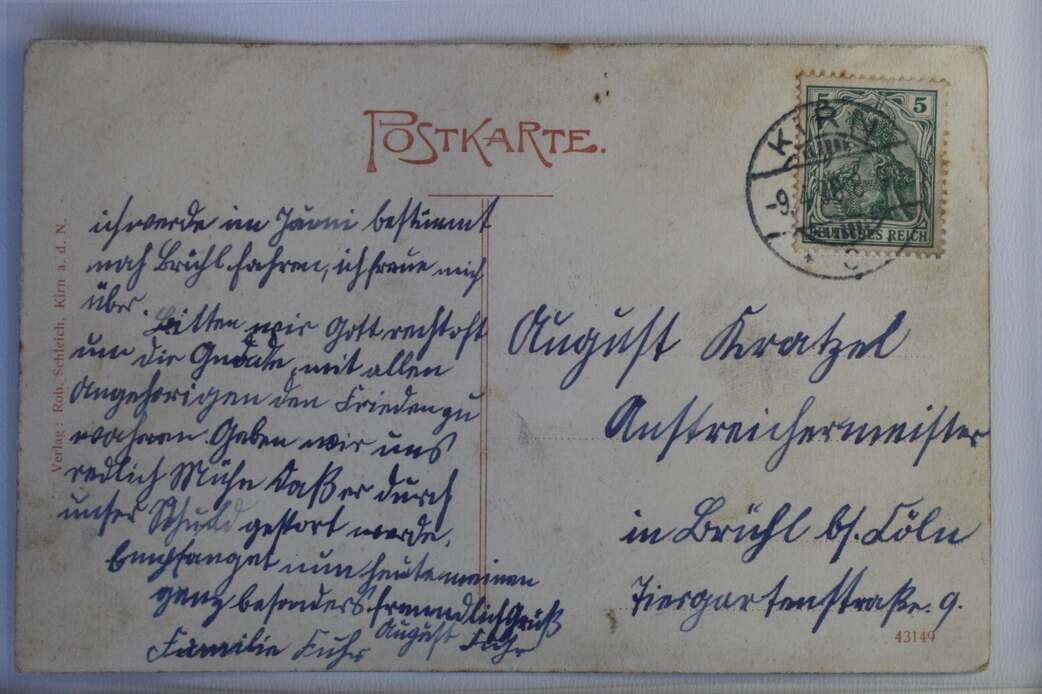 POSTKARTE.
5 5
DEUTSCHES REICH
KIRN
-9.4.
Verlag: Rob. Schleich, Kirn a. d. N.
ich werde im Juni bestimmt
nach Brühl fahren, ich freue mich
über.
Bitten wir Gott recht oft
um die Gnade, mit allen
Angehörigen den Frieden zu
wahren. Geben wir uns
redlich Mühe daß er durch
unser Schuld gestört werde.
Empfanget nun heute meinen
ganz besonders freundlich Gruß
Familie Fuhr August Fuhr
August Kratzel
Anstreichermeister
in Brühl bs. Cöln
Tiergartenstraße. 9.
43149